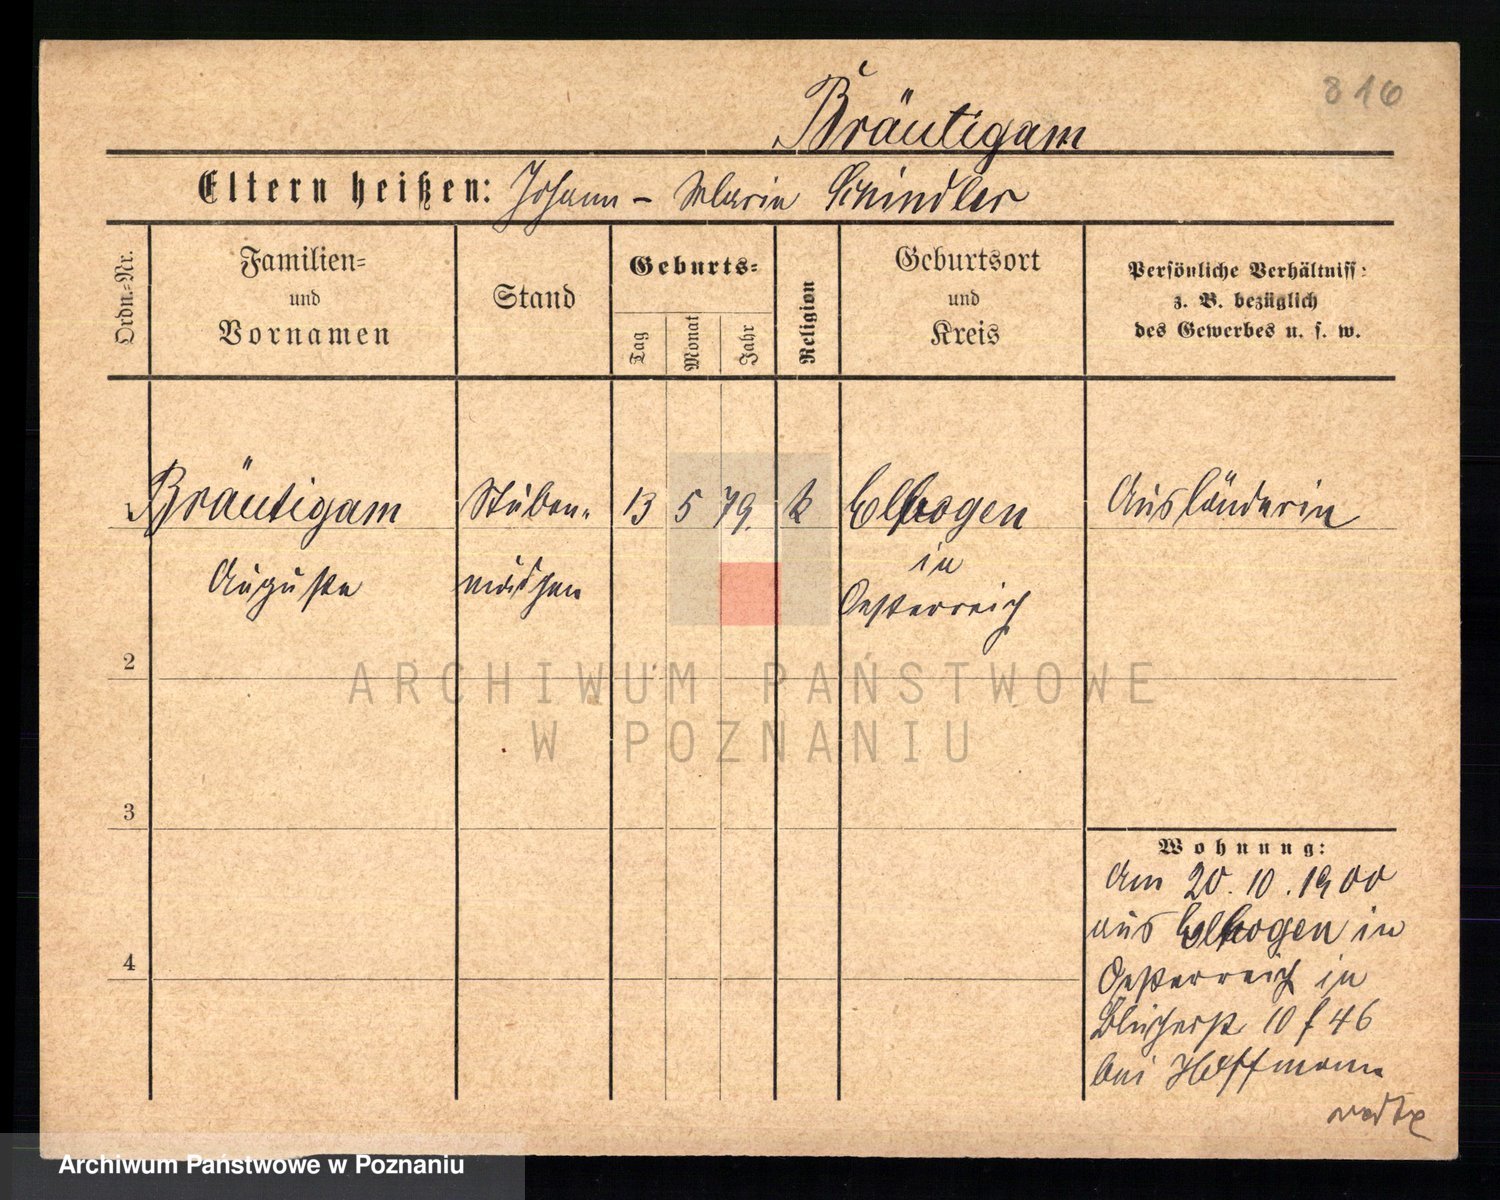 816
Bräutigam
Eltern heißen: Johann – Marie Schindler
Ordn.=Nr.
Familien=
und
Vornamen
Stand
Geburts=
Tag
Monat
Jahr
Religion
Geburtsort
und
Kreis
Persönliche Verhältniss:
z. B. bezüglich
des Gewerbes u. s. w.
Bräutigam Stuben= 13 5 79. k Elbogen Ausländerin
in
Auguste mädchen Oesterreich
2
ARCHIWUM PAŃSTWOWE
W POZNANIU
3
Wohnung:
Am 20.10.1900
aus Elbogen in
4
Oesterreich in
Blücherst 10 f 46
bei Hoffmann
Archiwum Państwowe w Poznaniu